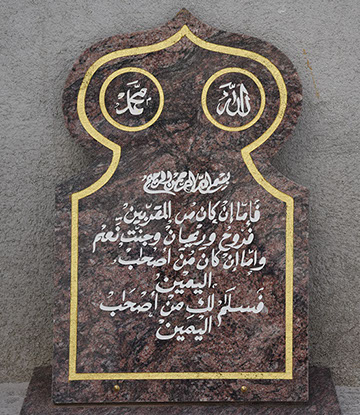 الله
محمد
بسم الله الرحمن الرحيم
فَأمّا إنْ كانَ منَ المقربينَ
فَروحٌ وريحانٌ وجنتُ نَعيمٌ
وأمّا إنْ كانَ مَنْ أصحَابْ
اليَمينْ
فَسلامٌ لكَ مَنْ أصحَابْ
اليَمينْ